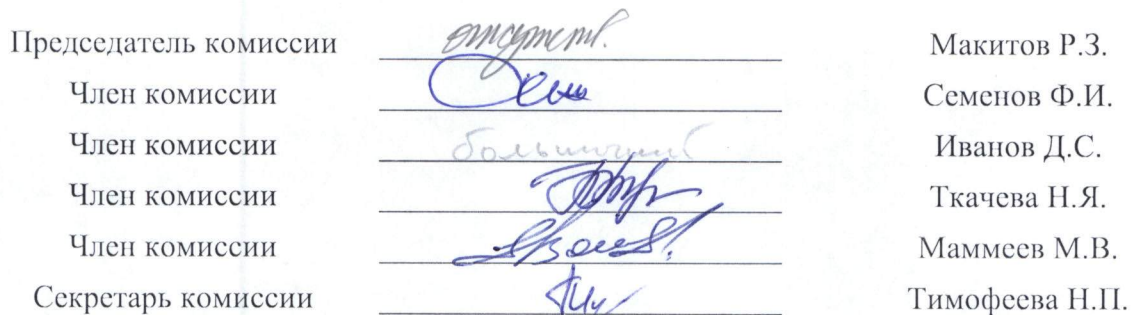 Председатель комиссии отсутств. Макитов Р.З.
Член комиссии Семенов Ф.И.
Член комиссии больничный Иванов Д.С.
Член комиссии Ткачева Н.Я.
Член комиссии Маммеев М.В.
Секретарь комиссии Тимофеева Н.П.